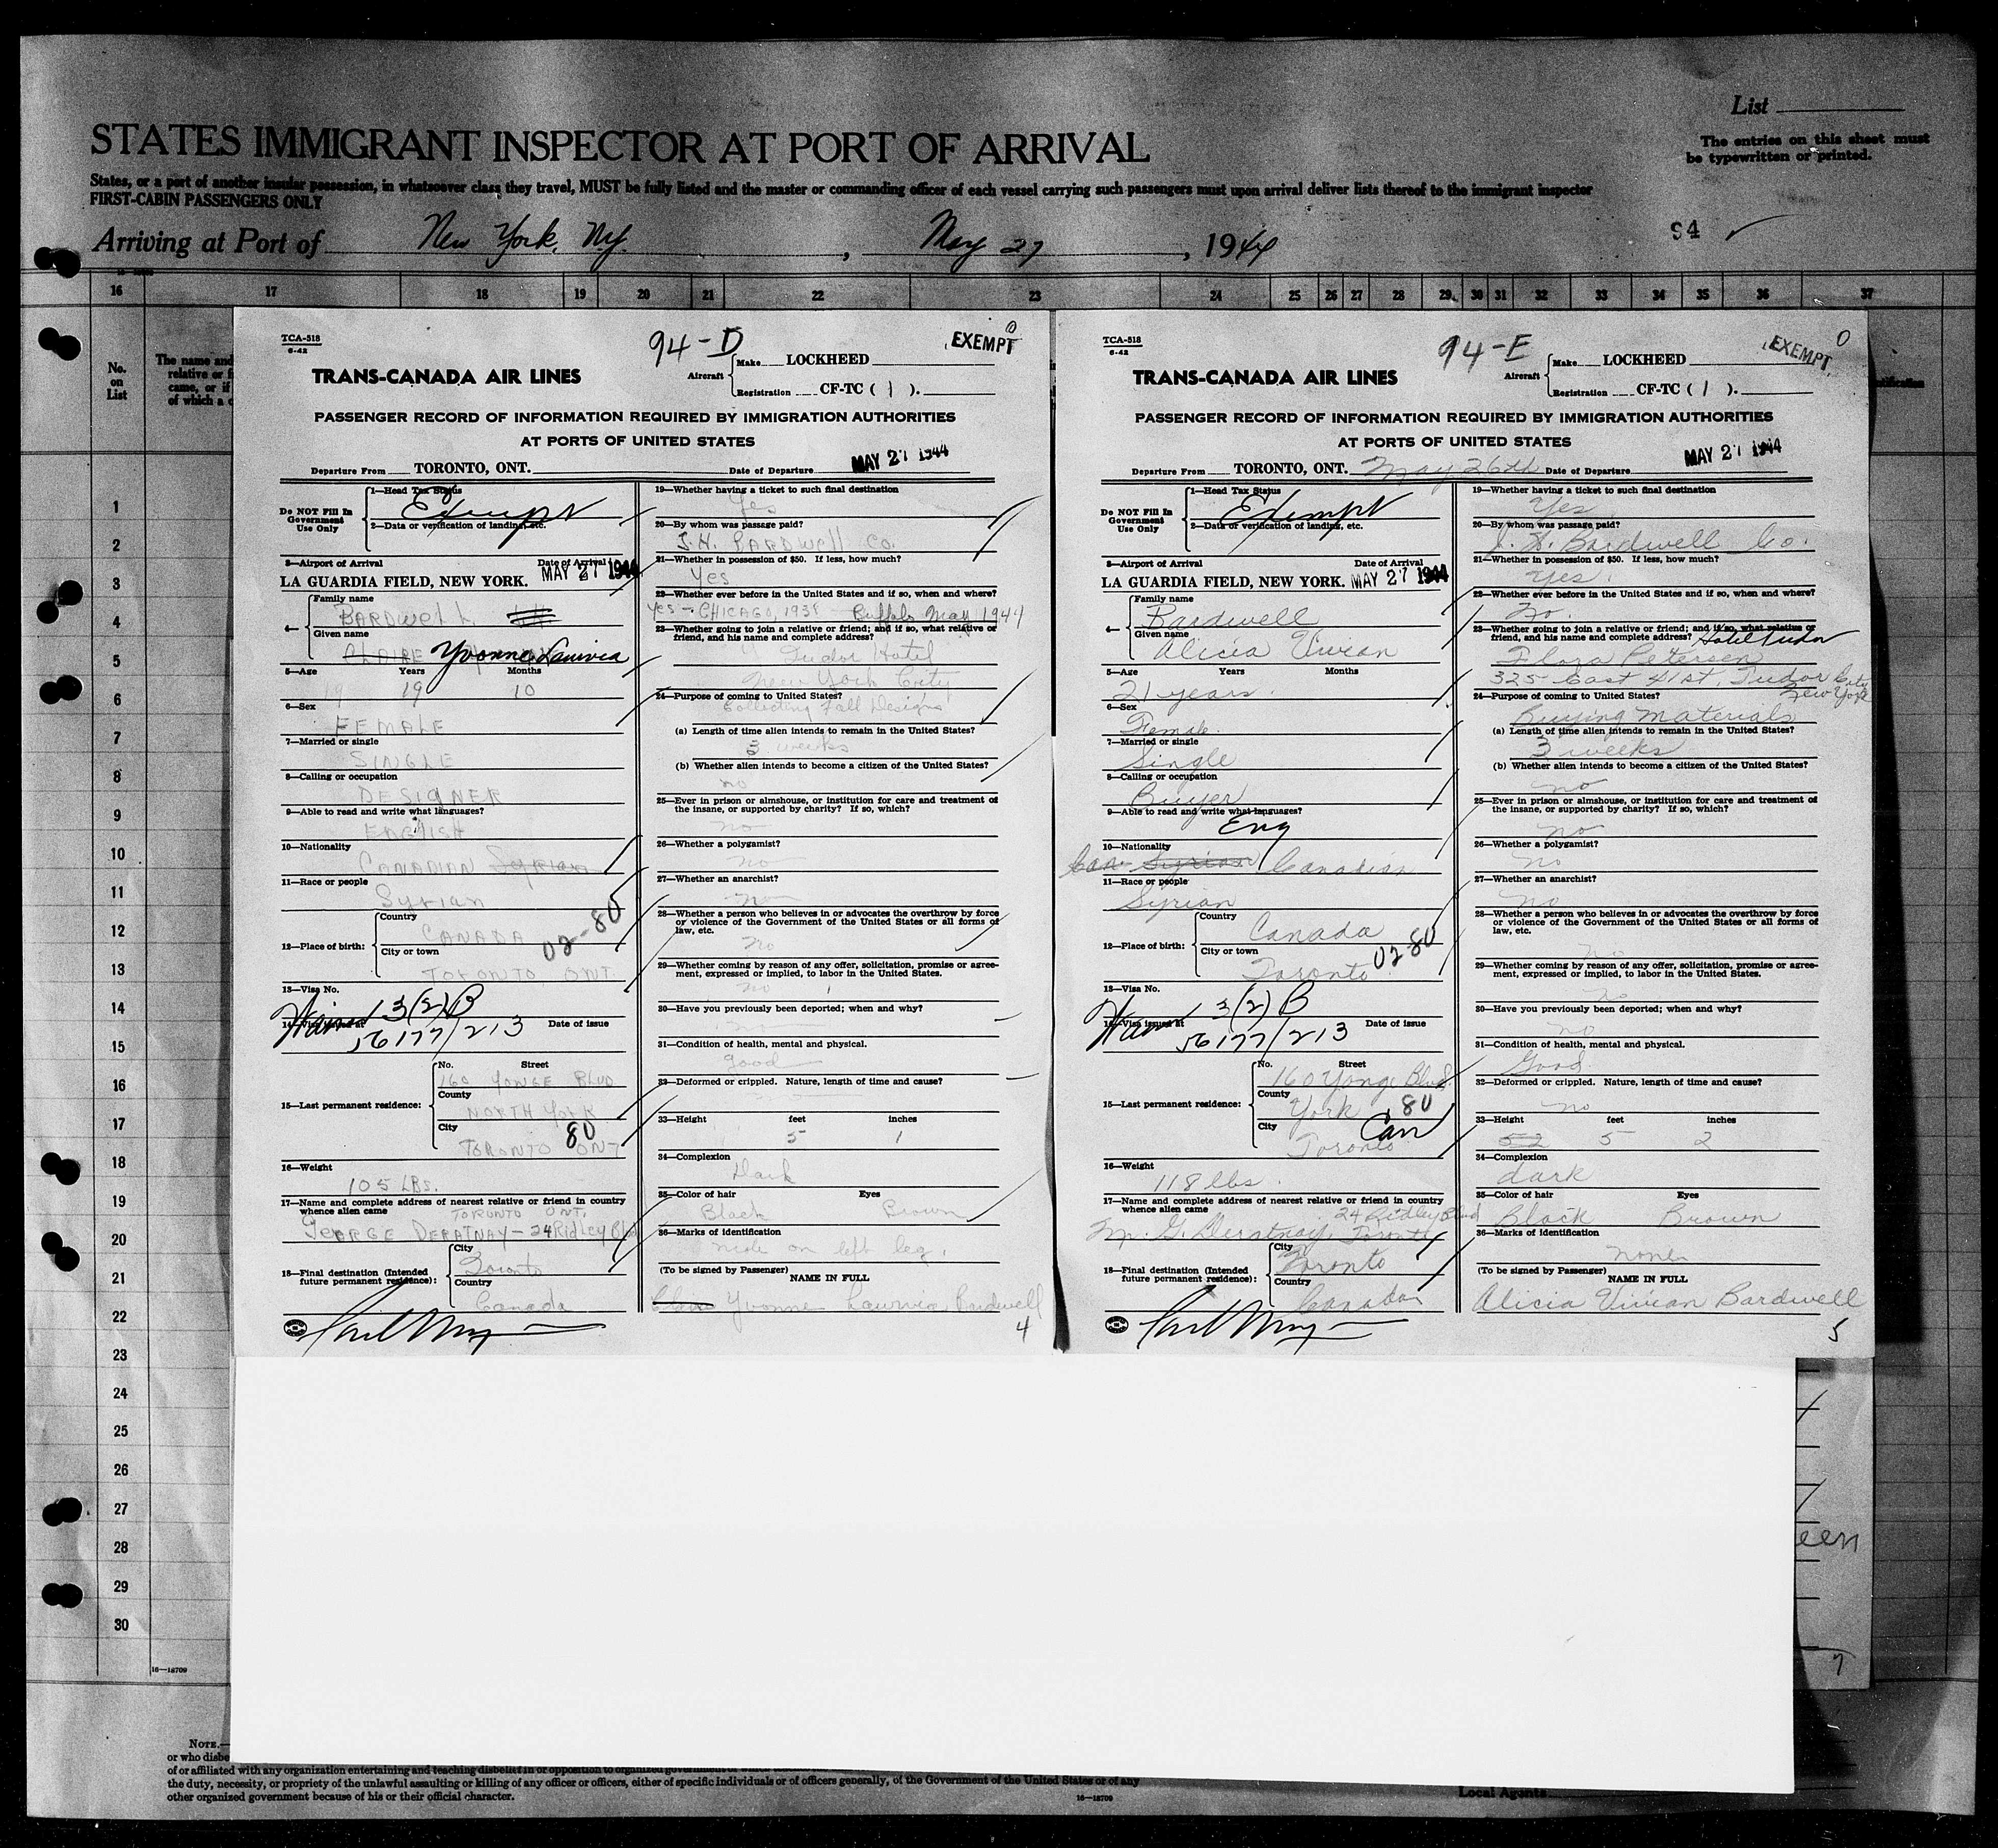 List
The entries on this sheet must
be typewritten or printed.
STATES IMMIGRANT INSPECTOR AT PORT OF ARRIVAL
States, or a port of another insular possession, in whatsoever class they travel, MUST be fully listed and the master or commanding officer of each vessel carrying such passengers must upon arrival deliver lists thereof to the immigrant inspector
FIRST-CABIN PASSENGERS ONLY
Arriving at Port of New York, N.Y., May 27, 1944
94
16 17 18 19 20 21 22 23 24 25 26 27 28 29 30 31 32 33 34 35 36 37
No.
on
List
The name and
relative or f
came, or if
of which a c
1
2
3
4
5
6
7
8
9
10
11
12
13
14
15
16
17
18
19
20
21
22
23
24
25
26
27
28
29
30
16—18709
TCA-518
6-42
94-D
EXEMPT
0
TRANS-CANADA AIR LINES
Aircraft
Make LOCKHEED
Registration CF-TC ( 1 ).
PASSENGER RECORD OF INFORMATION REQUIRED BY IMMIGRATION AUTHORITIES
AT PORTS OF UNITED STATES
Departure From TORONTO, ONT. Date of Departure MAY 27 1944
Do NOT Fill In
Government
Use Only
1—Head Tax Status
Exempt
2—Data or verification of landing, etc.
3—Airport of Arrival Date of Arrival
LA GUARDIA FIELD, NEW YORK. MAY 27 1944
4—
Family name
BARDWELL
Given name
CLAIRE Yvonne Laurvia
5—Age Years Months
19 19 10
6—Sex
FEMALE
7—Married or single
SINGLE
8—Calling or occupation
DESIGNER
9—Able to read and write what languages?
ENGLISH
10—Nationality
CANADIAN Syrian
11—Race or people
Syrian
12—Place of birth:
Country
CANADA
02-80
City or town
TORONTO ONT.
13—Visa No.
3(2)B
14—Visa issued at Date of issue
56177/213
15—Last permanent residence:
No. Street
160 YONGE BLVD
County
NORTH YORK
City 80
TORONTO ONT
16—Weight
105 LBS.
17—Name and complete address of nearest relative or friend in country
whence alien came TORONTO ONT.
GEORGE DERATNAY - 24 Ridley Blvd
18—Final destination (Intended
future permanent residence):
City
Toronto
Country
Canada
19—Whether having a ticket to such final destination
Yes
20—By whom was passage paid?
J.H. BARDWELL CO.
21—Whether in possession of $50. If less, how much?
Yes
22—Whether ever before in the United States and if so, when and where?
Yes - CHICAGO, 1938 Buffalo May 1944
23—Whether going to join a relative or friend; and if so, what relative or
friend, and his name and complete address?
Tudor Hotel
New York City
24—Purpose of coming to United States?
Collecting Fall Designs
(a) Length of time alien intends to remain in the United States?
3 weeks
(b) Whether alien intends to become a citizen of the United States?
no
25—Ever in prison or almshouse, or institution for care and treatment of
the insane, or supported by charity? If so, which?
no
26—Whether a polygamist?
no
27—Whether an anarchist?
no
28—Whether a person who believes in or advocates the overthrow by force
or violence of the Government of the United States or all forms of
law, etc.
no
29—Whether coming by reason of any offer, solicitation, promise or agree-
ment, expressed or implied, to labor in the United States.
no
30—Have you previously been deported; when and why?
31—Condition of health, mental and physical.
good
32—Deformed or crippled. Nature, length of time and cause?
33—Height feet inches
5 1
34—Complexion
Dark
35—Color of hair Eyes
Black Brown
36—Marks of identification
mole on left leg.
(To be signed by Passenger)
NAME IN FULL
Yvonne Laurvia Bardwell
4
TCA-518
6-42
94-E
EXEMPT
0
TRANS-CANADA AIR LINES
Aircraft
Make LOCKHEED
Registration CF-TC ( 1 ).
PASSENGER RECORD OF INFORMATION REQUIRED BY IMMIGRATION AUTHORITIES
AT PORTS OF UNITED STATES
Departure From TORONTO, ONT. May 26th Date of Departure MAY 27 1944
Do NOT Fill In
Government
Use Only
1—Head Tax Status
Exempt
2—Data or verification of landing, etc.
3—Airport of Arrival Date of Arrival
LA GUARDIA FIELD, NEW YORK. MAY 27 1944
4—
Family name
Bardwell
Given name
Alicia Vivian
5—Age Years Months
21 years.
6—Sex
Female.
7—Married or single
Single
8—Calling or occupation
Buyer
9—Able to read and write what languages?
Eng
10—Nationality
Can Syrian Canadian
11—Race or people
Syrian
12—Place of birth:
Country
Canada
02-80
City or town
Toronto
13—Visa No.
3(2)B
14—Visa issued at Date of issue
56177/213
15—Last permanent residence:
No. Street
160 Yonge Blvd
County
York 80
City Can
Toronto
16—Weight
118 lbs.
17—Name and complete address of nearest relative or friend in country
whence alien came 24 Ridley Blvd
Mr. G. Deratnay, Toronto
18—Final destination (Intended
future permanent residence):
City
Toronto
Country
Canada
19—Whether having a ticket to such final destination
Yes
20—By whom was passage paid?
J. H. Bardwell Co.
21—Whether in possession of $50. If less, how much?
Yes.
22—Whether ever before in the United States and if so, when and where?
No.
23—Whether going to join a relative or friend; and if so, what relative or
friend, and his name and complete address? Hotel Tudor
Flora Petersen
325 East 41st, Tudor City
New York
24—Purpose of coming to United States?
Buying Materials
(a) Length of time alien intends to remain in the United States?
3 weeks
(b) Whether alien intends to become a citizen of the United States?
no
25—Ever in prison or almshouse, or institution for care and treatment of
the insane, or supported by charity? If so, which?
no
26—Whether a polygamist?
no
27—Whether an anarchist?
no
28—Whether a person who believes in or advocates the overthrow by force
or violence of the Government of the United States or all forms of
law, etc.
no
29—Whether coming by reason of any offer, solicitation, promise or agree-
ment, expressed or implied, to labor in the United States.
no
30—Have you previously been deported; when and why?
no
31—Condition of health, mental and physical.
Good
32—Deformed or crippled. Nature, length of time and cause?
no
33—Height feet inches
52 5 2
34—Complexion
dark
35—Color of hair Eyes
Black Brown
36—Marks of identification
none
(To be signed by Passenger)
NAME IN FULL
Alicia Vivian Bardwell
5
een
7
NOTE.—
or who disbe
of or affiliated with any organization entertaining and teaching disbelief in or opposition to organized
the duty, necessity, or propriety of the unlawful assaulting or killing of any officer or officers, either of specific individuals or of officers generally, of the Government of the United States or of any
other organized government because of his or their official character.
16—18709
Local Agents